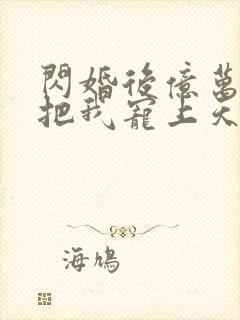 閃婚後億萬
把我寵上天
海鳩